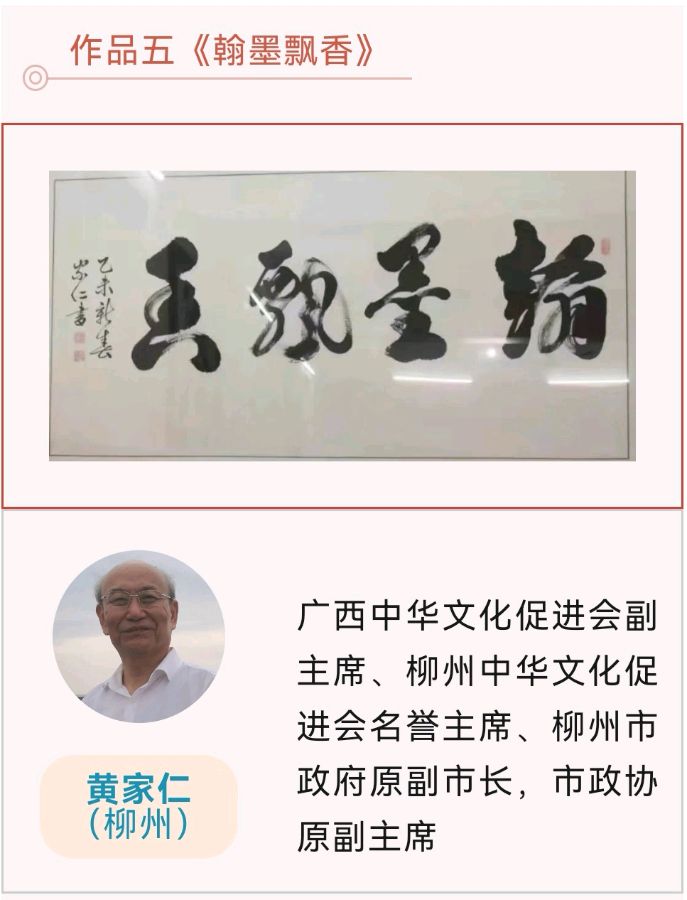 作品五《翰墨飘香》
翰墨飘香
乙未新春
家仁书
广西中华文化促进会副
主席、柳州中华文化促
进会名誉主席、柳州市
政府原副市长，市政协
原副主席
黄家仁
（柳州）